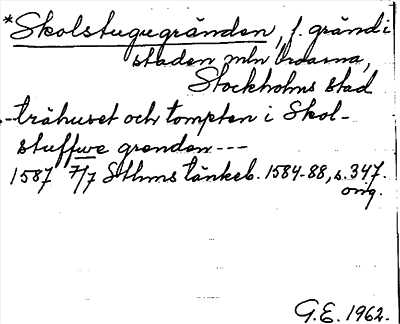 *Skolstugugränden, f. gränd i
staden mln broarna,
Stockholms stad
--trähuset och tompten i Skol-
stuffwe grenden ---
1587 7/7 Sthms tänkeb. 1584-88, s. 347.
orig.
G.E. 1962.